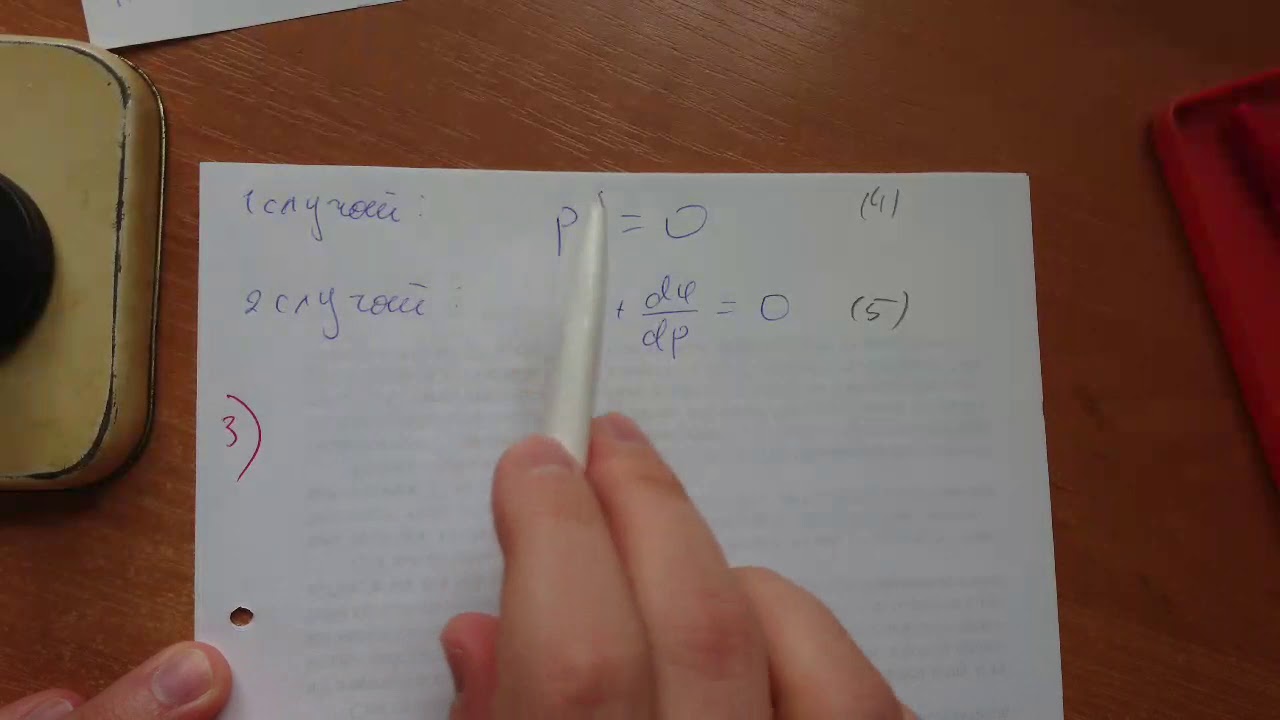 1 случай: p' = 0 (4)
2 случай: + dφ/dp = 0 (5)
3)